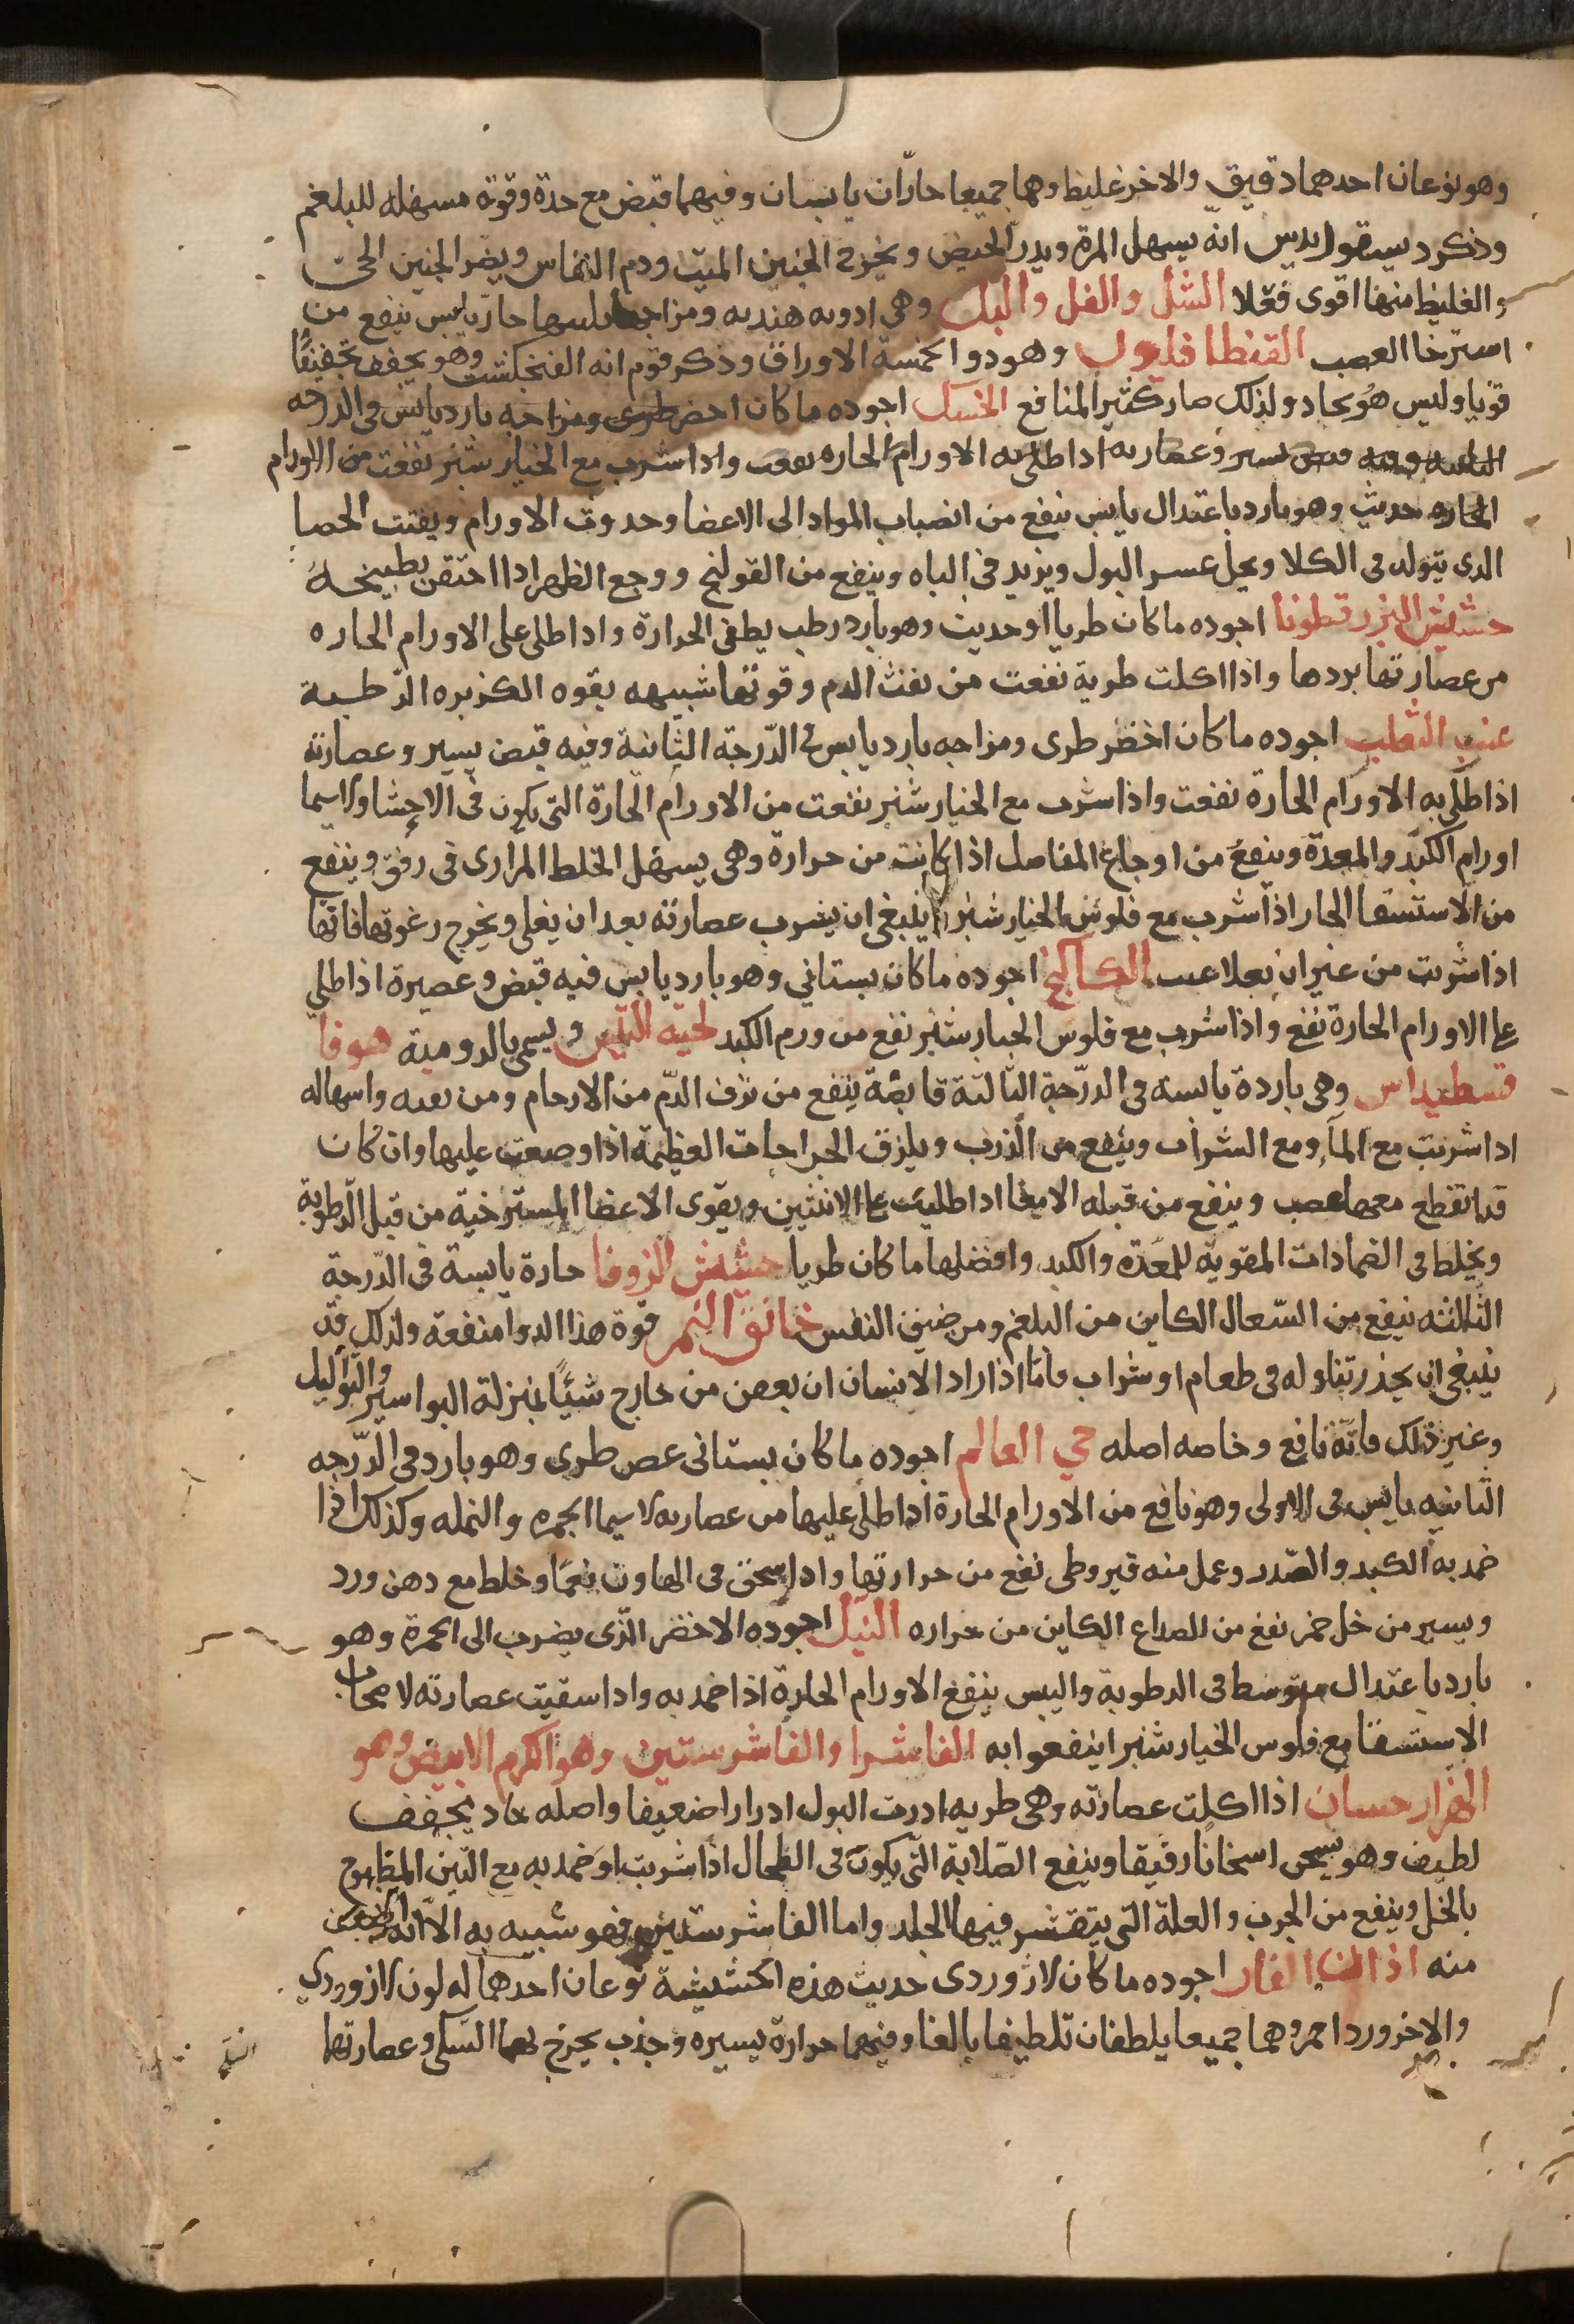 وهو نوعان احدهما دقيق والاخر غليظ وهما جميعا حارّان يابسان وفيهما قبض مع حدة وقوة مسهله للبلغم
وذكر ديسقوريدس انّه يسهل المرة ويدرّ الحيض ويخرج الجنين الميّت ودم النفاس ويضر الجنين الحيّ
والغليظ منهما اقوى فعلا الشل والفل والبل وهى ادويه هنديه ومزاجها حارّ يابس ينفع من
استرخا العصب القنطافلون وهو ذو الخمسة الاوراق وذكر قوم انه الفنجنكشت وهو يجفف تجفيفًا
قويا وليس هو بحاد ولذلك صار كثير المنافع الخسك اجوده ما كان اخضر طرى ومزاجه بارد يابس فى الدرجه
الثانيه وفيه قبض يسير وعصارته اذا طلى به الاورام الحاره نفعت واذا شرب مع الخيار شنبر نفعت من الاورام
الحاره حديث وهو بارد باعتدال يابس ينفع من انصباب المواد الى الاعضا وحدوث الاورام ويفتت الحصا
الذى يتولد فى الكلا ويحل عسر البول ويزيد فى الباه وينفع من القولنج ووجع الظهر اذا احتقن بطبيخه
حشيش البزرقطونا اجوده ما كان طريا اوحديث وهو بارد رطب يطفى الحرارة واذا طلى على الاورام الحاره
من عصارتها بردها واذا اكلت طرية نفعت من نفث الدم وقوتها شبيهه بقوه الكزبره الرّطبة
عنب الثعلب اجوده ما كان اخضر طرى ومزاجه بارد يابس فى الدّرجة الثّانية وفيه قبض يسير وعصارته
اذا طلى به الاورام الحارة نفعت واذا شرب مع الخيار شنبر نفعت من الاورام الحارة التى يكون فى الاحشا ولاسيما
اورام الكبد والمعدة وينفع من اوجاع المفاصل اذا كانت من حرارة وهى يسهل الخلط المرارى فى رفق وينفع
من الاستسقا الحار اذا شرب مع فلوس الخيار شنبر ينبغى ان يشرب عصارته بعد ان يغلى ويخرج رغوتها فانّها
اذا شربت من غير ان يغلا الكاكنج اجوده ما كان بستاني وهو بارد يابس فيه قبض وعصيره اذا طلي
على الاورام الحارة نفع واذا شرب مع فلوس الخيار شنبر نفع من ورم الكبد لحية التّيس ويسمى بالرومية هوفا
قسطيداس وهى باردة يابسه فى الدرّجة الثّالثة قابضة ينفع من نزف الدّم من الارحام ومن واسهاله
اذا شربت مع الما ومع الشراب وينفع من الذرب ويلزق الجراحات العظيمة اذا وضعت عليها وان كان
قد انقطع معها عصب وينفع من قبله الامعا اذا طليت على الانثيين ويقوى الاعضا المسترخية من قبل الرطوبة
ويخلط فى الضمادات المقويه للمعده والكبد وافضلها ما كان طريا حشيش الزوفا حارة يابسة فى الدّرجة
الثالثه ينفع من السّعال الكاين من البلغم ومن ضيق النفس خانق النمر قوة هذا الدوا منفعة ولذلك قد
ينبغى ان يحذر تناوله فى طعام او شراب فامّا اذا اراد الانسان ان يعفن من خارج شيئًا بمنزلة البواسير والثواليل
وغير ذلك فانّه نافع وخاصه اصله حي العالم اجوده ما كان بستانى غض طرى وهو بارد فى الدّرجه
الثانيه يابس فى الاولى وهو نافع من الاورام الحارة اذا طلى عليها من عصارته لاسيما الجمره والنمله وكذلك اذا
ضمد به الكبد والصّدر وعمل منه قيروطى نفع من حرارتها واذا سحق فى الهاون نعمًا وخلط مع دهن ورد
ويسير من خل خمر نفع من الصداع الكاين من حراره النيل اجوده الاخضر الذى يضرب الى الحمرة وهو
بارد باعتدال متوسط فى الرطوبة واليبس ينفع الاورام الحارة اذا ضمد به واذا سقيت عصارته لاصحاب
الاستسقا مع فلوس الخيار شنبر انتفعوا به الفاشرا والفاشرستين وهو الكرم الابيض وهو
الهزار حسان اذا اكلت عصارته وهى طريه ادرت البول ادرارا ضعيفا واصله حاد يجفف
لطيف وهو يسخن اسخانًا رقيقا وينفع الصّلابة التّى يكون فى الطحال اذا شربت او ضمد به مع التّين المطبوخ
بالخل وينفع من الجرب والعلة التى يتقشر فيها الجلد واما الفاشرستين فهو شبيه به الاّ انّه اضعف
منه اذان الفار اجوده ما كان لازوردى حديث هذه الحشيشة نوعان احدهما له لون لازوردي
والاخر ورد احمر وهما جميعا يلطفان تلطيفا بالغا وفيهما حرارة يسيره وجذب يخرج بهما السلى وعصارتها